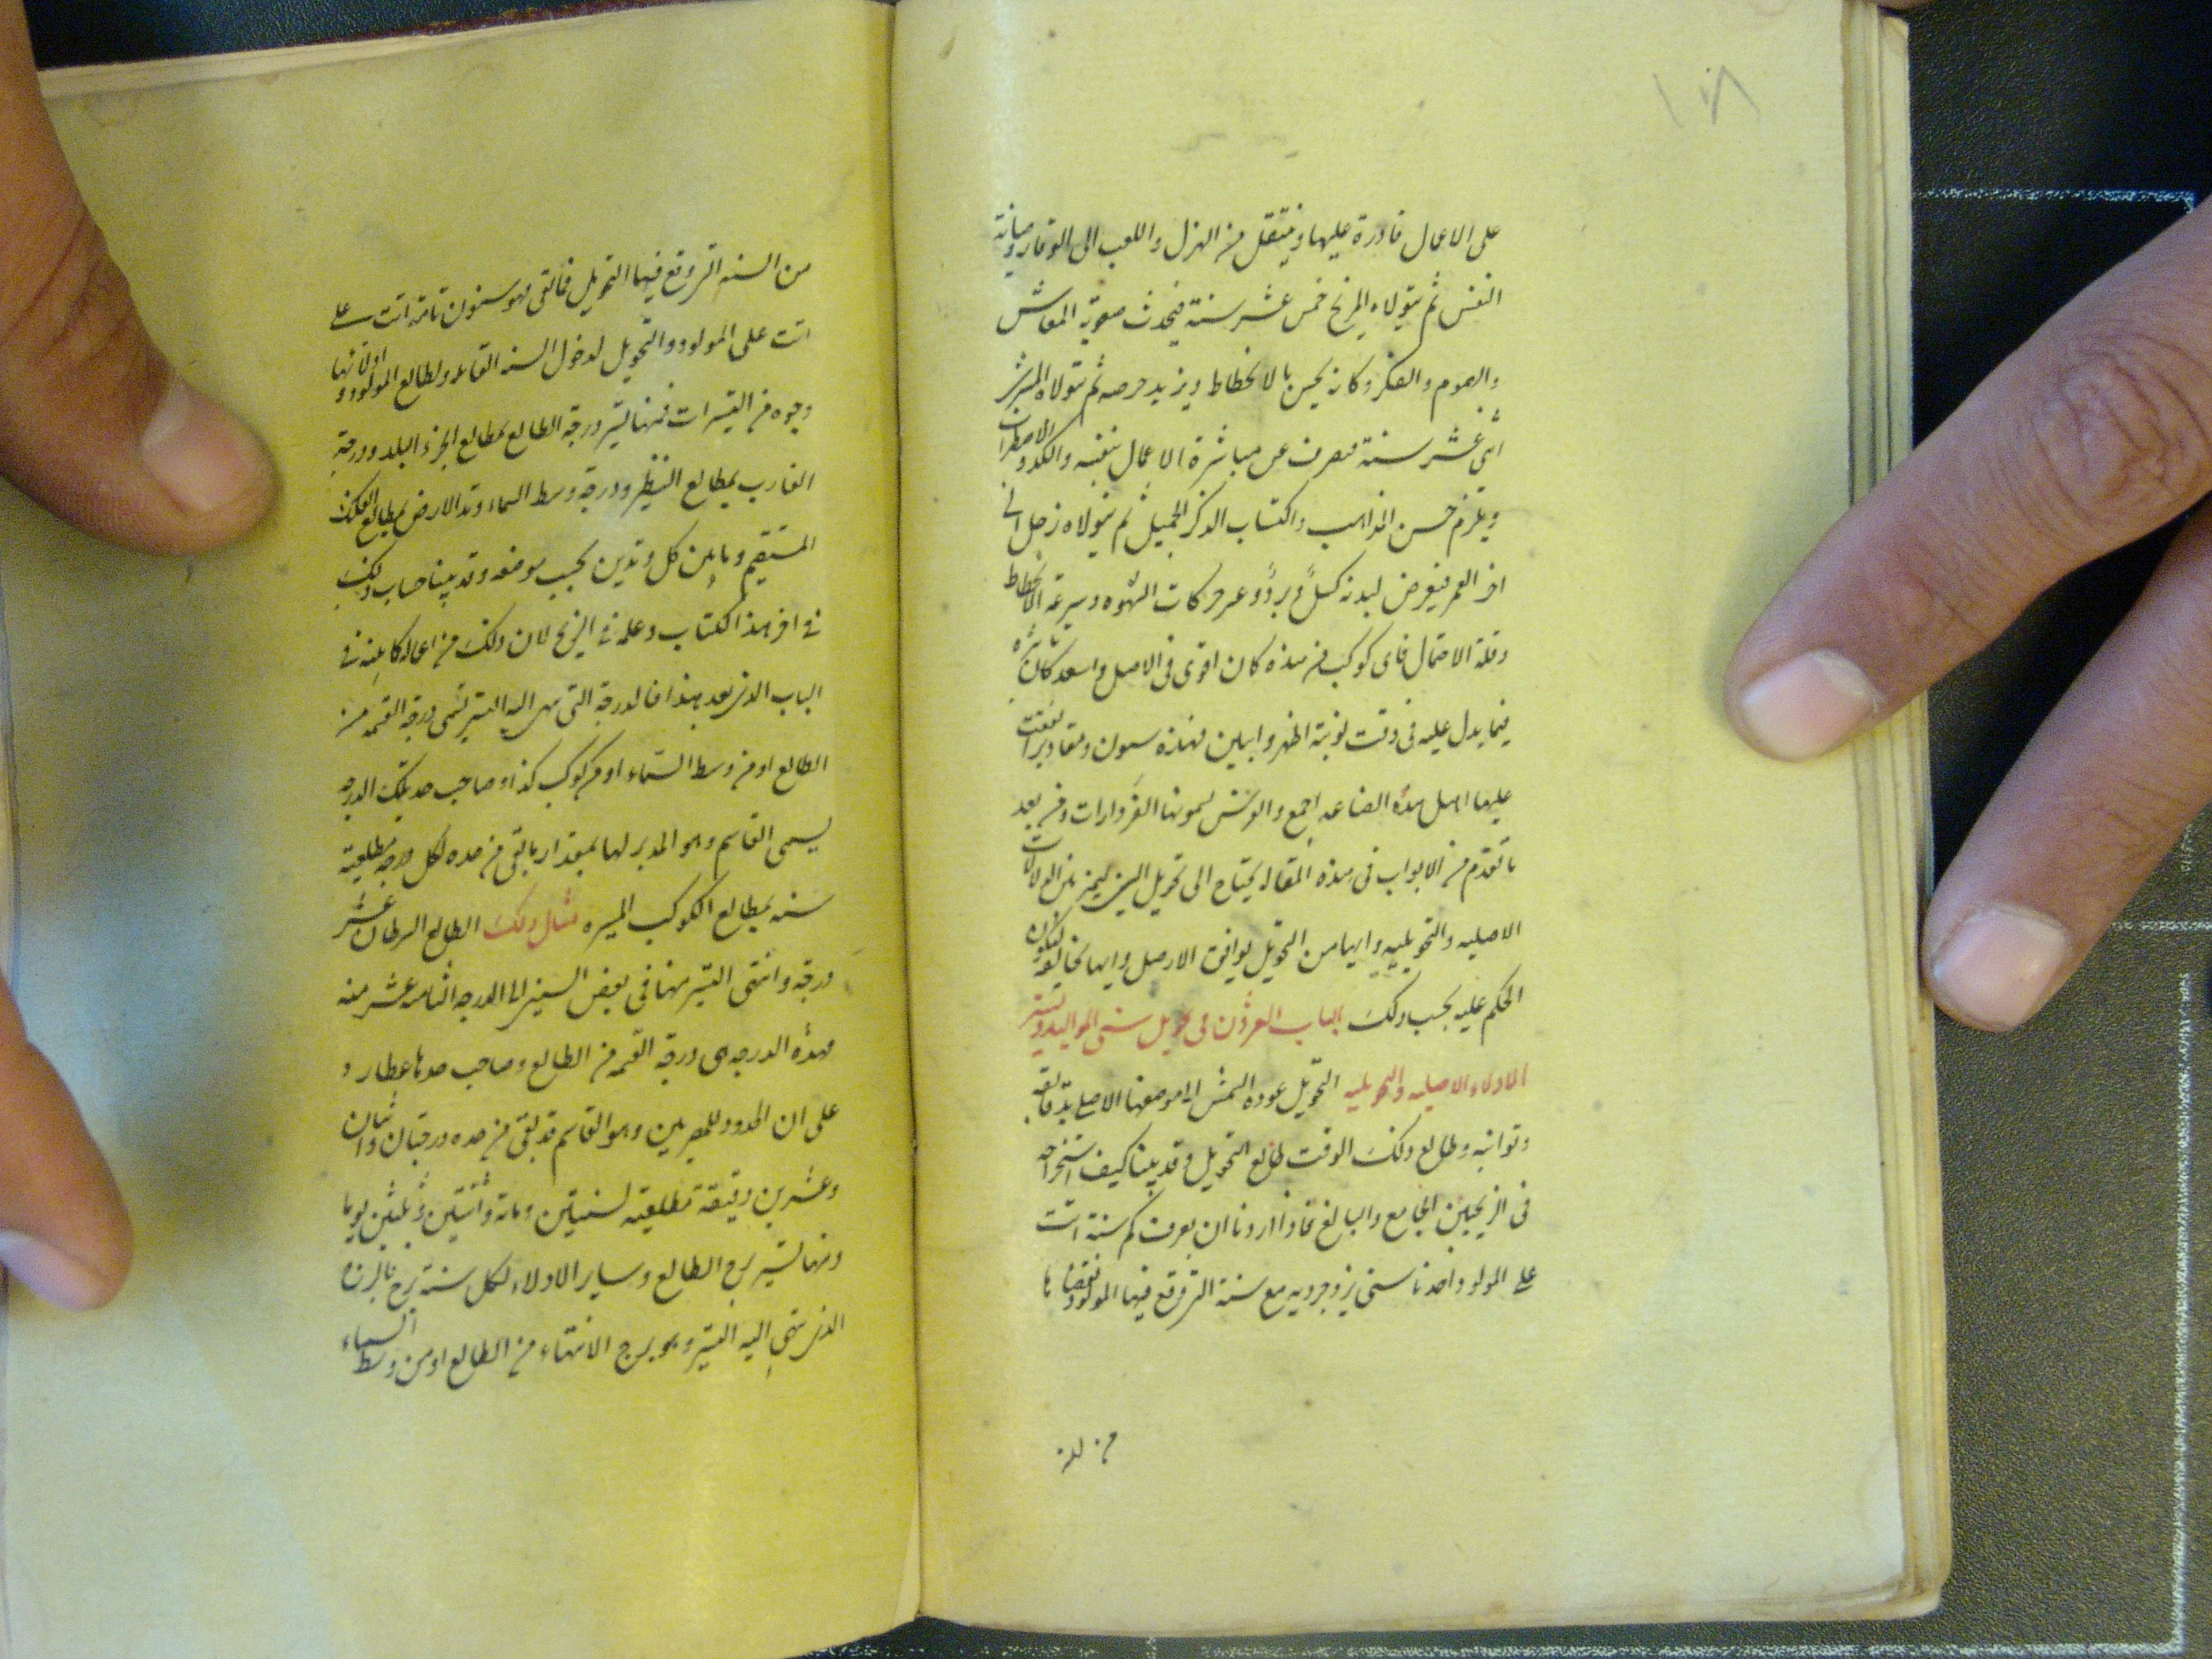 ١٠٨
على الاعمال قادرة عليها وينتقل من الهزل واللعب الى الوقار وصيانة
النفس ثم يتولاه المريخ خمس عشر سنة فيحدث صعوبة المعاش
والهموم والفكر وكانه يحس بالانحطاط ويزيد حرصه ثم يتولاه المشترى
اثنى عشر سنة فيصرف عن مباشرة الاعمال بنفسه والكد والاضطراب
ويلزم حسن المذاهب واكتساب الذكر الجميل ثم يتولاه زحل الى
اخر العمر فيعرض لبدنه كسل وبردا وعسر حركات الشهوه وسرعة الانحطاط
وقلة الاحتمال فاى كوكب من هذه كان اقوى فى الاصل واسعد كان تاثيره
فيما يدل عليه فى وقت نوبته اظهر وابين فهذه سنون ومقادير اتفقت
عليها اهل هذه الصناعه اجمع والفرس يسمونها الفردارات ومن بعد
ما تقدم من الابواب فى هذه المقاله يحتاج الى تحويل السنين ليميز بين الدلالات
الاصليه والتحويليه وايها من التحويل يوافق الاصل وايها يخالفه ليكون
الحكم عليه بحسب ذلك الباب العشرون فى تحويل سنى المواليد وتسيير
الادلاء الاصليه والتحويليه التحويل عودة الشمس الى موضعها الاصلى بدقائقه
وثوانيه وطالع ذلك الوقت طالع التحويل وقد بينا كيف استخراجه
فى الزيجين الجامع والبالغ فاذا اردنا ان يعرف كم سنة اتت
على المولود اخذنا سنى يزدجرديه مع سنة التى وقع فيها المولود نقصناها
من السنه
من السنه التى وقع فيها التحويل فما بقى فهو سنون تامة اتت على
اتت على المولود والتحويل لدخول السنه القابله ولطالع المولود وادلائها
وجوه من التسييرات فمنها تسيير درجة الطالع بمطالع الجزء البلد ودرجة
الغارب بمطالع النظير ودرجة وسط السماء وتد الارض بمطالع الفلك
المستقيم وما بين كل وتدين بحسب موضعه وقد بينا حساب ذلك
فى اخر هذا الكتاب وعلمه فى الزيج لان ذلك من اعماله كما بينه فى
الباب الذى بعد هذا فالدرجة التى ينتهى اليه التسيير تسمى درجة القسمه من
الطالع او من وسط السماء او من كوكب كذا وصاحب حد تلك الدرجه
يسمى القاسم وهو المدبر لها بمقدار ما بقى من حده لكل درجة مطلعية
سنه بمطالع الكوكب المسيره مثال ذلك الطالع السرطان عشر
درجة وانتهى التسيير منها فى بعض السنين الى الدرجه الثامنه عشر منه
فهذه الدرجه هى درجة القسمه من الطالع وصاحب حدها عطارد
على ان الحدود للمصريين وهو القاسم قد بقى من حده درجتان واثنان
وعشرين دقيقة مطلعيه لسنتين ومائة واثنتين وثلثين يوما
ومنها تسيير برج الطالع وساير الادلاء لكل سنة برج فالبرج
الذى ينتهى اليه التسيير وهو برج الانتهاء من الطالع او من وسط السماء